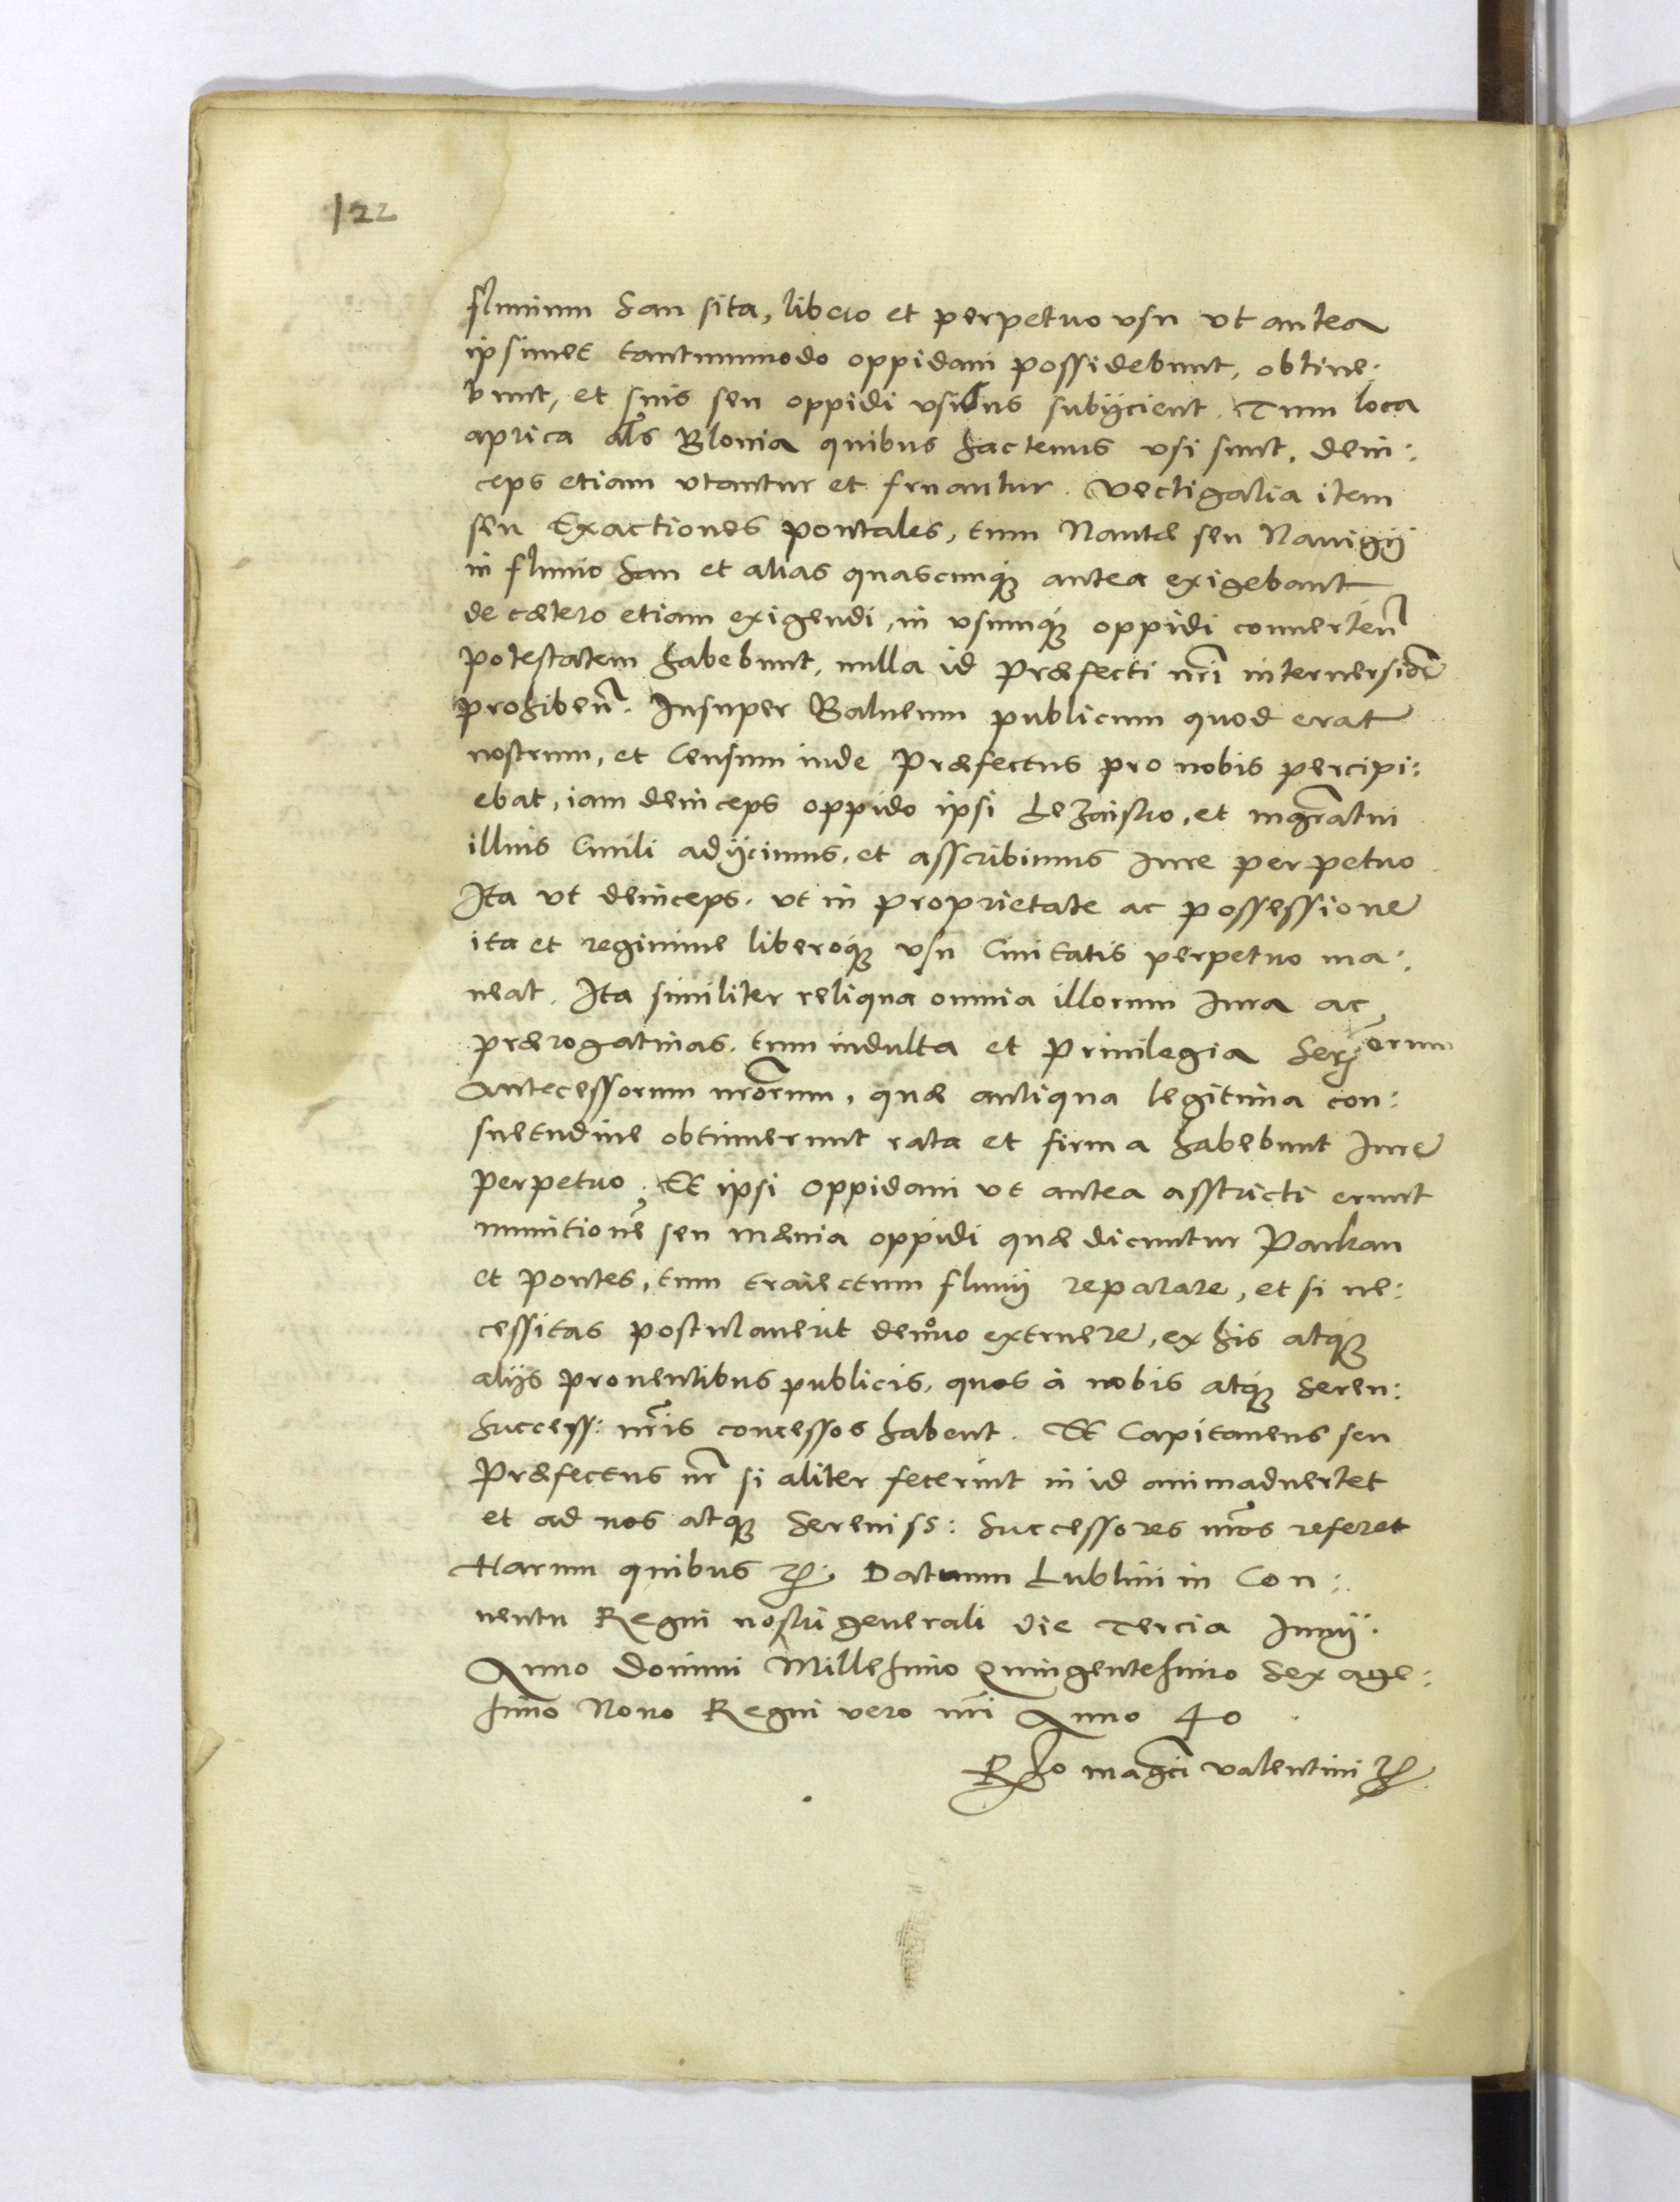 122
fluuium San sita, libero et perpetuo vsu vt antea
ipsimet tantummodo oppidani possidebunt, obtine:
bunt, et suis seu oppidi vsibus subijcient. Tum loca
aprica als Blonia quibus hactenus vsi sunt, dein:
ceps etiam vtantur et fruantur. Vectigalia item
seu Exactiones pontales, tum Nautæ seu Nauigij
in fluuio San et alias quascunque antea exigebant
de cætero etiam exigendi, in vsumque oppidi conuerten̄
potestatem habebunt, nulla id Præfecti nr̄i interuersiōe
prohiben̄. Insuper Balneum publicum quod erat
nostrum, et Censum inde Præfectus pro nobis percipi:
ebat, iam deinceps oppido ipsi Lezaisko, et mgr̄atui
illius Ciuili adijcimus, et asscribimus Iure perpetuo
Ita vt deinceps, vt in proprietate ac possessione
ita et regimine liberoque vsu Ciuitatis perpetuo ma:
neat. Ita similiter reliqua omnia illorum Iura ac
prærogatiuas, tum indulta et Priuilegia Ser: orum
Antecessorum nr̄orum, quæ antiqua legitima con:
suetudine obtinuerunt rata et firma habebunt Iure
perpetuo. Et ipsi oppidani vt antea asstricti erunt
munitionē seu mænia oppidi quæ dicuntur Parkan
et pontes, tum traiectum fluuij reparare, et si ne:
cessitas postulauerit denuo extruere, ex his atque
alijs prouentibus publicis, quos à nobis atque Seren:
Success: nr̄is concessos habent. Et Capitaneus seu
Præfectus nr̄ si aliter fecerint in id animaduertet
et ad nos atque Sereniss: Successores nr̄os referet
Harum quibus etc. Datum Lublini in Con:
uentu Regni nostri generali die Tercia Iunij.
Anno Domini Millesimo Quingentesimo Sexage:
simo Nono Regni vero nr̄i Anno 40.
Rlo magci Valentini etc.